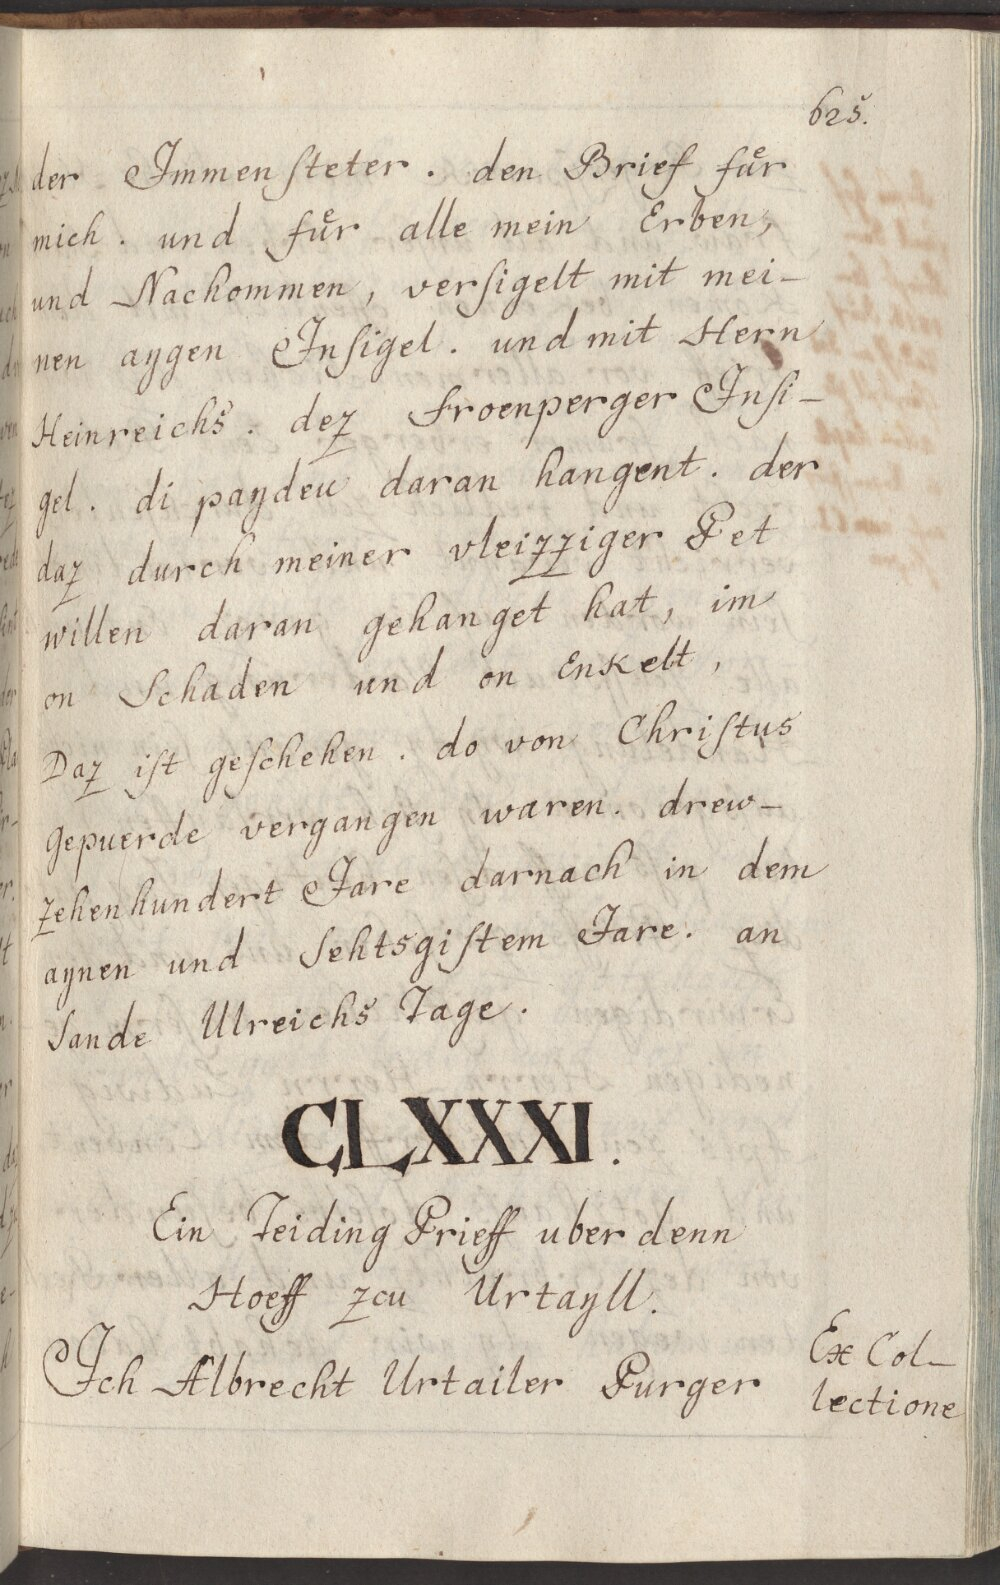 625.
der Immensteter. den Brief fuͤr
mich. und fuͤr alle mein Erben,
und Nachommen, versigelt mit mei-
nen aygen Insigel. und mit Hern
Heinreichs. dez Froenperger Insi-
gel. di paydeu daran hangent. der
daz durch meiner vleizziger Pet
willen daran gehanget hat, im
on Schaden und on Enkelt,
Daz ist geschehen. do von Christus
gepuerde vergangen waren. drew-
zehenhundert Jare darnach in dem
aynen und Sehtsgistem Jare. an
Sande Ulreichs Tage.
CLXXXI.
Ein Teiding Prieff uber denn
Hoeff zcu Urtayll.
Ich Albrecht Urtailer Purger
Ex Col-
lectione